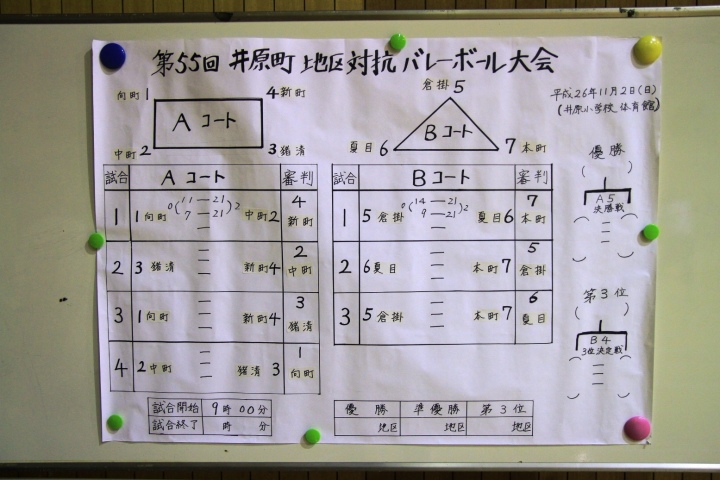 第55回 井原町 地区対抗 バレーボール大会
平成26年11月2日(日)
(井原小学校 体育館)
向町 1 4 新町
A コート
中町 2 3 猪清
倉掛 5
B コート
夏目 6 7 本町
試合 A コート 審判
1 1 向町 0(11—21 7—21)2 中町 2 4 新町
2 3 猪清 新町 4 2 中町
3 1 向町 新町 4 3 猪清
4 2 中町 猪清 3 1 向町
試合 B コート 審判
1 5 倉掛 0(14—21 9—21)2 夏目 6 7 本町
2 6 夏目 本町 7 5 倉掛
3 5 倉掛 本町 7 6 夏目
優勝
( )
A5
決勝戦
第3位
( )
B4
3位決定戦
試合開始 9時00分
試合終了 時 分
優勝 準優勝 第3位
地区 地区 地区